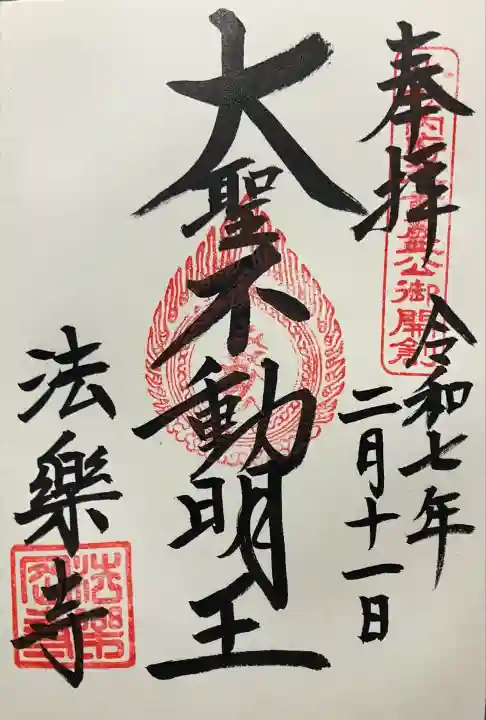 奉拝
公御開創
令和七年
二月十一日
大聖不動明王
法樂寺
法樂寺